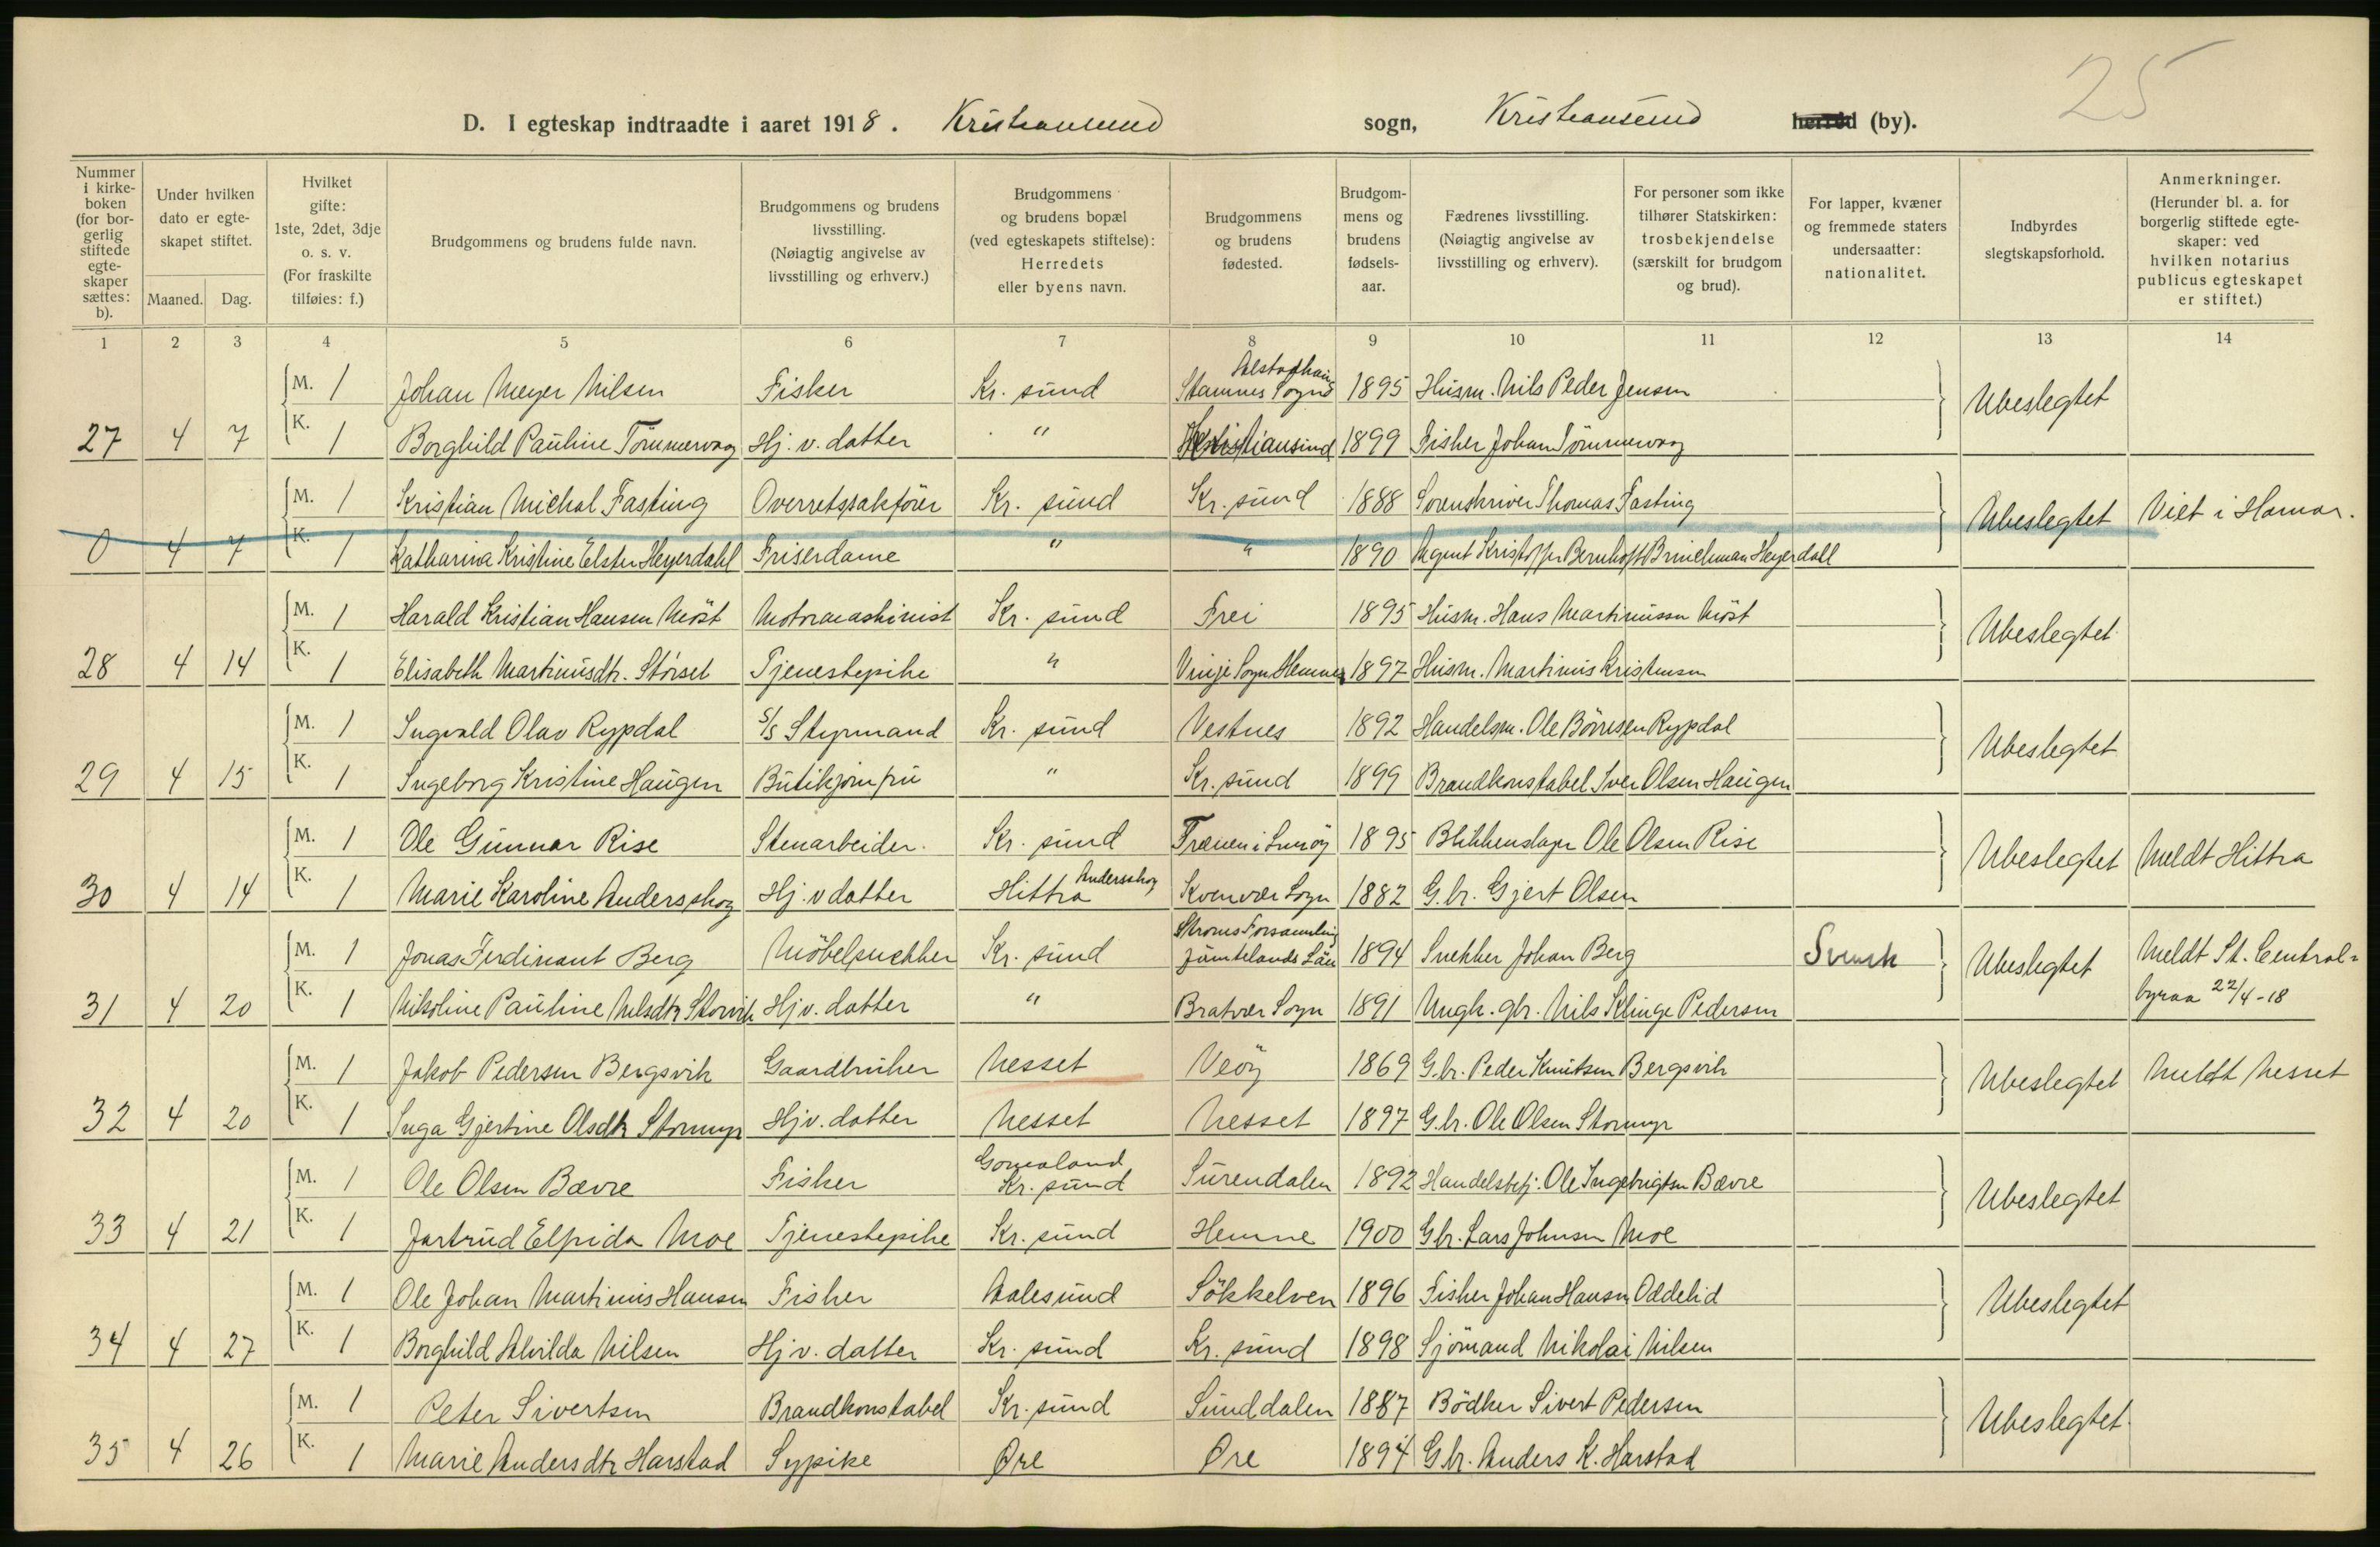 25
D. I egteskap indtraadte i aaret 1918. Kristiansund sogn, Kristiansund herred (by).
Nummer i kirke- boken (for bor- gerlig stiftede egte- skaper sættes: b).
Under hvilken dato er egte- skapet stiftet.
Maaned. Dag.
Hvilket gifte: 1ste, 2det, 3dje o. s. v. (For fraskilte tilføies: f.)
Brudgommens og brudens fulde navn.
Brudgommens og brudens livsstilling. (Nøiagtig angivelse av livsstilling og erhverv.)
Brudgommens og brudens bopæl (ved egteskapets stiftelse): Herredets eller byens navn.
Brudgommens og brudens fødested.
Brudgom- mens og brudens fødsels- aar.
Fædrenes livsstilling. (Nøiagtig angivelse av livsstilling og erhverv).
For personer som ikke tilhører Statskirken: trosbekjendelse (særskilt for brudgom og brud).
For lapper, kvæner og fremmede staters undersaatter: nationalitet.
Indbyrdes slegtskapsforhold.
Anmerkninger. (Herunder bl. a. for borgerlig stiftede egte- skaper: ved hvilken notarius publicus egteskapet er stiftet.)
1 2 3 4 5 6 7 8 9 10 11 12 13 14
Alstadhaug
M. 1 Johan Meyer Nilsen Fisker Kr. sund Stamnes Sogn 1895 Husm. Nils Peder Jensen Ubeslegtet
27 4 7 K. 1 Borghild Pauline Tömmervag Hj. v. datter " Kristiansund 1899 Fisker Johan Tömmervag
M. 1 Kristian Michal Fasting Overretssakförer Kr. sund Kr. sund 1888 Sorenskriver Thomas Fasting Ubeslegtet Viet i Hamar.
0 4 7 K. 1 Katharina Kristine Elster Heyerdahl Friserdame " " 1890 Agent Kristoffer Bernhoft Brinchman Heyerdall
M. 1 Harald Kristian Hansen Möst Motormaskinist Kr. sund Frei 1895 Husm. Hans Martinussen Möst Ubeslegtet
28 4 14 K. 1 Elisabeth Martinusdtr. Störset Tjenestepike " Vinje Sogn Hemne 1897 Husm. Martinus Kristensen
M. 1 Ingvald Olav Rypdal S/S Styrmand Kr. sund Vestnes 1892 Handelsm. Ole Börresen Rypdal Ubeslegtet
29 4 15 K. 1 Ingeborg Kristine Haugen Butikjomfru " Kr. sund 1899 Brandkonstabel Iver Olsen Haugen
M. 1 Ole Gunnar Rise Stenarbeider. Kr. sund i Smöy 1895 Blikkenslager Ole Olsen Rise Ubeslegtet Meldt Hittra
Andersskog
30 4 14 K. 1 Marie Karoline Andersskog Hj. v datter Hittra Kvenvær Sogn 1882 G. br. Gjert Olsen
Ströms Forsamling
M. 1 Jonas Ferdinant Berg Möbelsnekker Kr. sund Jämtelands Län 1894 Snekker Johan Berg Svensk Ubeslegtet Meldt St. Central-
31 4 20 K. 1 Nikoline Pauline Nilsdtr Storvik Hj v. datter " Bratvær Sogn 1891 Ungk. gbr. Nils Klinge Pedersen byraa 22/4-18
M. 1 Jakob Pedersen Bergsvik Gaardbruker Nesset Veöy 1869 G. br. Peder Knutsen Bergsvik Ubeslegtet Meldt Nesset
32 4 20 K. 1 Inga Gjertine Olsdtr Stormyr Hj v. datter Nesset Nesset 1897 G. br. Ole Olsen Stormyr
Gomaland
M. 1 Ole Olsen Bævre Fisker Kr. sund Surendalen 1892 Handelsbetj. Ole Ingebrigtsen Bævre Ubeslegtet
33 4 21 K. 1 Jartrud Elfrida Moe Tjenestepike Kr. sund Hemne 1900 G br. Lars Johnsen Moe
M. 1 Ole Johan Martinus Hansen Fisker Aalesund Sökkelven 1896 Fisker Johan Hansen Oddelid Ubeslegtet
34 4 27 K. 1 Borghild Alvilda Nilsen Hj v. datter Kr. sund Kr. sund 1898 Sjömand Nikolai Nilsen
M. 1 Peter Sivertsen Brandkonstabel Kr. sund Sunddalen 1887 Bödker Sivert Pedersen Ubeslegtet
35 4 26 K. 1 Marie Andersdtr Harstad Sypike Øre Øre 1894 G br. Anders K. Harstad